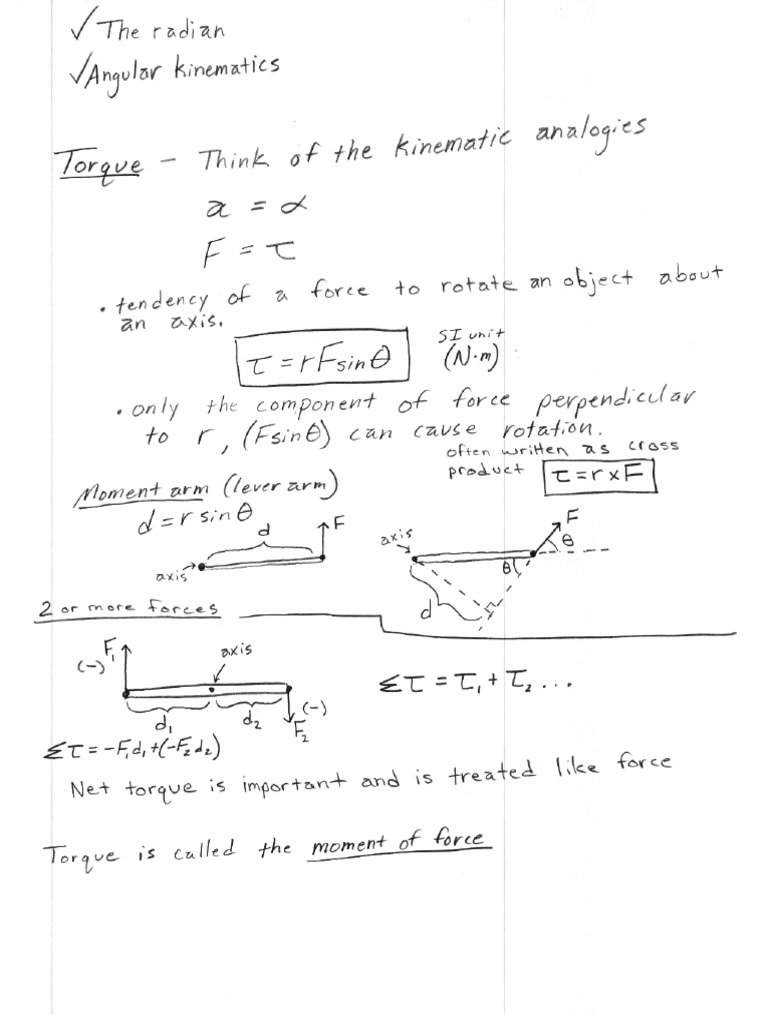 ✓ The radian
✓ Angular kinematics
Torque - Think of the kinematic analogies
a = α
F = τ
• tendency of a force to rotate an object about
an axis.
τ = rFsinθ
SI unit
(N·m)
• only the component of force perpendicular
to r, (Fsinθ) can cause rotation.
often written as cross
product τ = r x F
Moment arm (lever arm)
d = r sinθ
d
F
axis
axis
F
θ
θ
d
2 or more forces
F₁
(-)
axis
d₁
d₂
(-)
F₂
Στ = τ₁ + τ₂ ...
Στ = -F₁d₁ + (-F₂d₂)
Net torque is important and is treated like force
Torque is called the moment of force